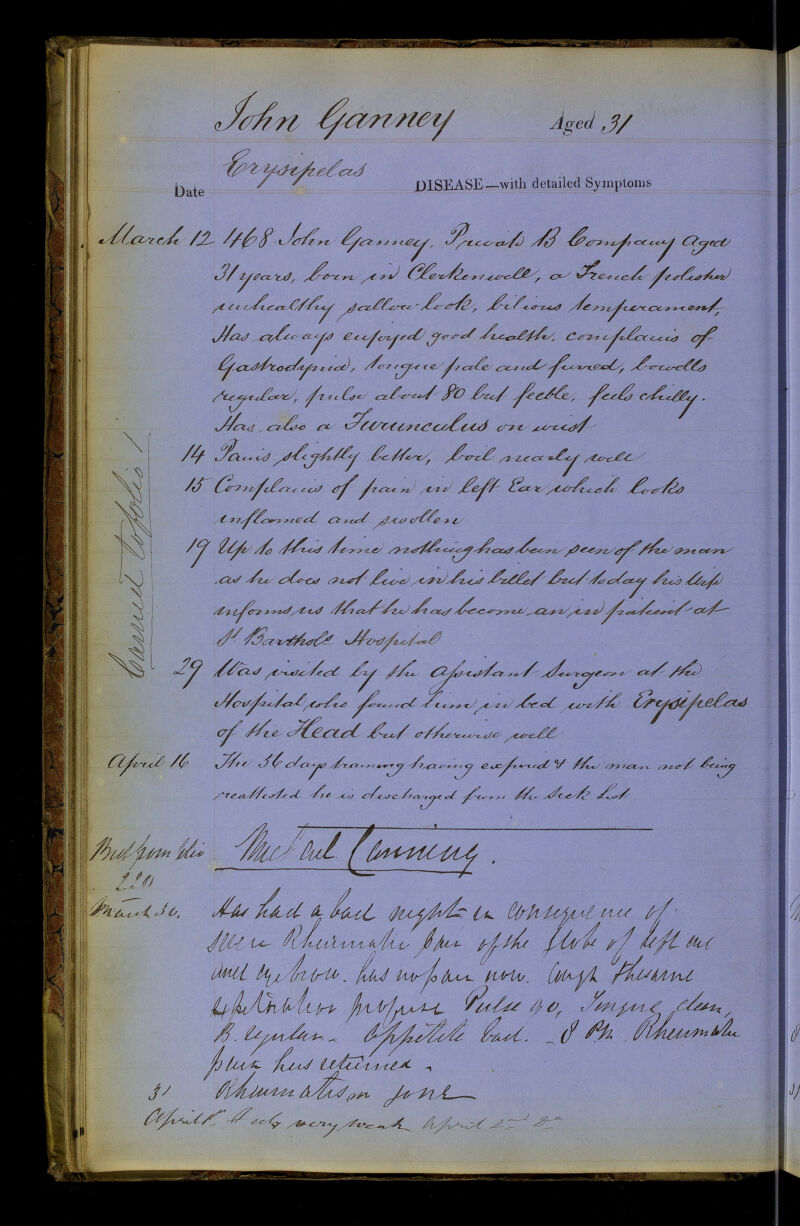 John Ganney Aged 31
Erysipelas
Date DISEASE—with detailed Symptoms
March 12 468 John Ganney, Private B Company Aged
31 years, born in Clerkenwell, a French polisher
unhealthy sallow look, bilious temperament,
Has always enjoyed good health, complains of
Gastrodynia, tongue pale and furred, bowells
regular, pulse about 80 but feeble, feels chilly.
Has also a Furunculus on wrist
14 Pains slightly better, boil nearly well
15 Complains of pain in left Ear which looks
inflamed and swollen
19 Up to this time nothing has been seen of the man
as he does not live in his billet but today his Wife
informs us that he has become an in patient at
St Barthols Hospital
29 Was visited by the Assistant Surgeon at the
Hospital who found him in bed with Erysipelas
of the Head but otherwise well
April 16 The 56 days training having expired & the man not being
reattested he is discharged from the Sick List
Carried to folio 1
Brot from folio Michael Canning.
220
March 30. Has had a bad night in consequence of
severe Rheumatic pain of the globe of left eye
and eyebrow. has no pain now. Cough the same
expectoration profuse Pulse 90, Tongue clean,
B. regular - appetite bad. - 8 PM. Rheumatic
pain has returned -
31 Rheumatism gone
April 1st Feels very weak April 2nd Do